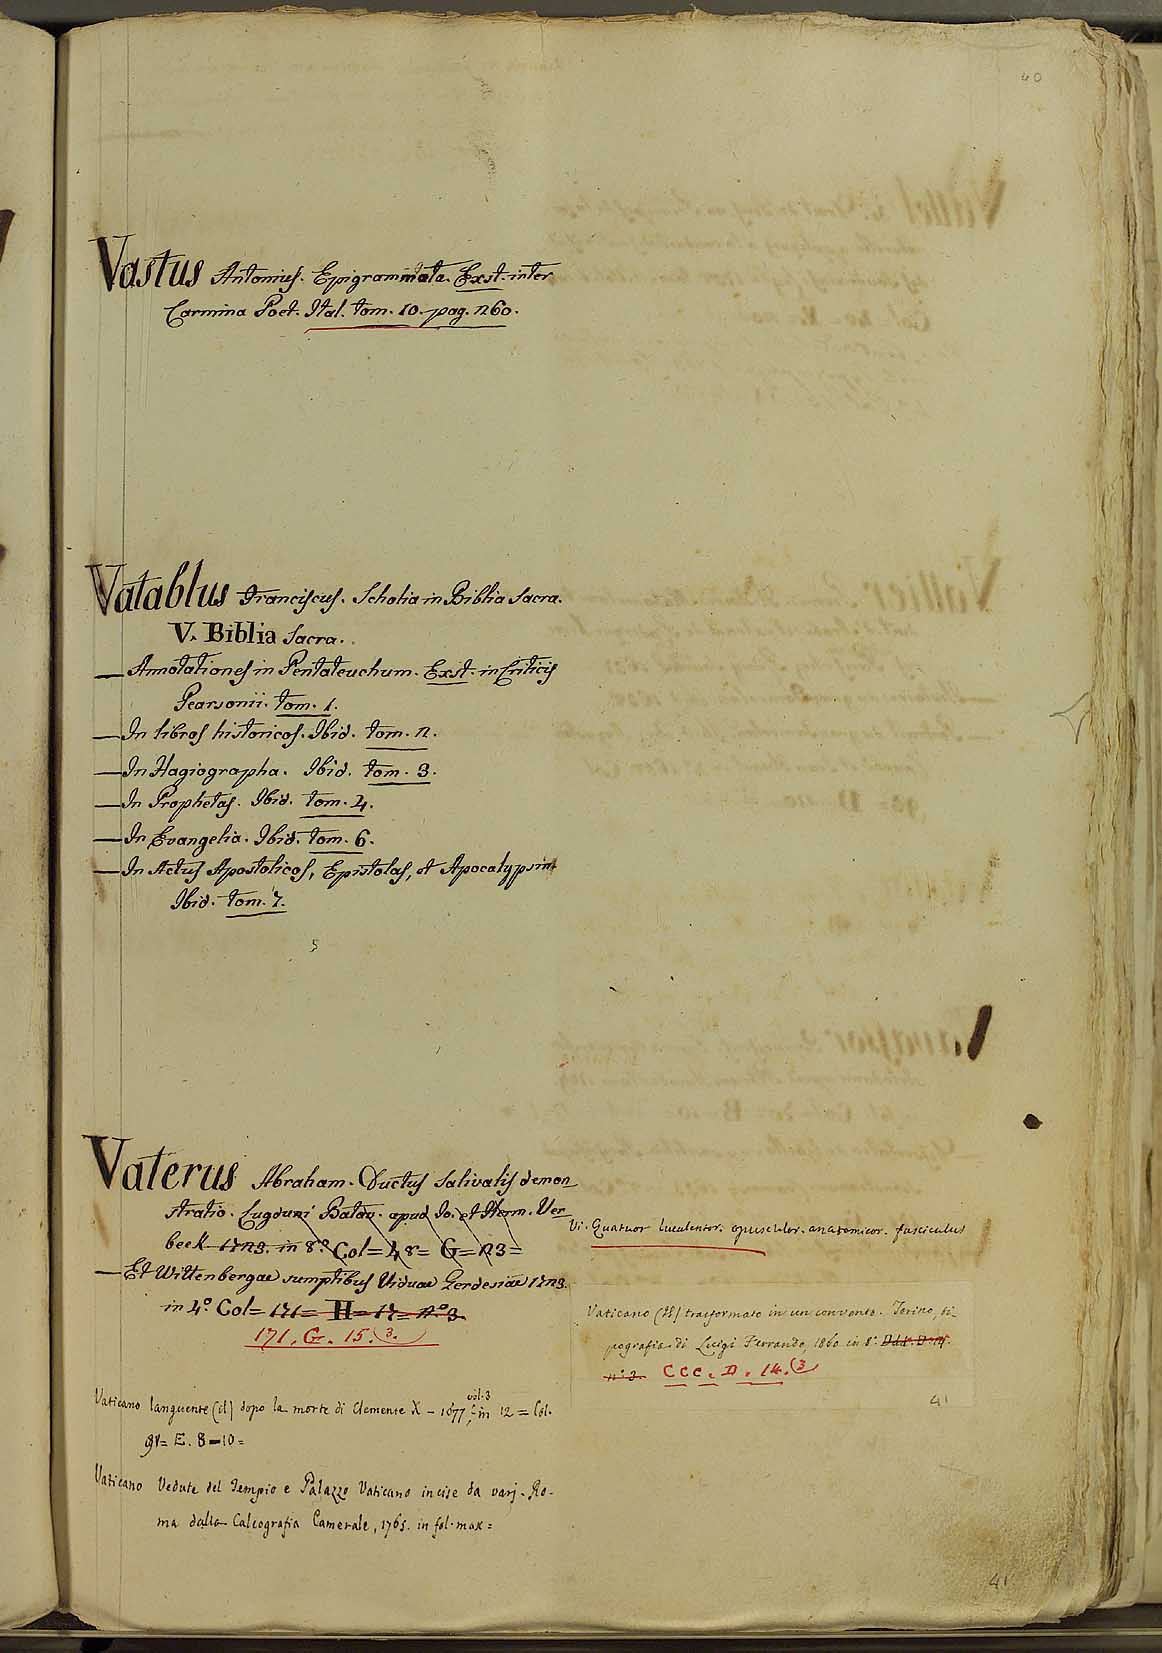 40
Vastus Antonius. Epigrammata. Exst. inter
Carmina Poet. Ital. tom. 10. pag. 260.
Vatablus Franciscus. Scholia in Biblia Sacra.
V. Biblia Sacra.
— Annotationes in Pentateuchum. Exst. in Criticis
Pearsonii. tom. 1.
— In libros historicos. Ibid. tom. 2.
— In Hagiographa. Ibid. tom. 3.
— In Prophetas. Ibid. tom. 4.
— In Evangelia. Ibid. tom. 6.
— In Actus Apostolicos, Epistolas, et Apocalypsim
Ibid. tom. 7.
Vaterus Abraham. Ductus salivalis demon
stratio. Lugduni Batav. apud Jo. et Herm. Ver
beek 1723. in 8º Col= 48= G= 23=
— Et Wittenbergae sumptibus Viduae Gerdesiae 1723.
in 4º. Col= 171= H= 17= nº 3.
171. G. 15. (3.
Vi. Quatuor luculentor. opusculor. anatomicor. fasciculus
Vaticano (Il) trasformato in un convento. Torino, ti-
pografia di Luigi Ferrando, 1860 in 8º.
nº 3. CCC. D. 14. (3
41
Vaticano languente (il) dopo la morte di Clemente X - 1677, vol. 3 in 12 = Col.
91= E. 8-10=
Vaticano Vedute del Tempio e Palazzo Vaticano incise da varj. Ro-
ma dalla Calcografia Camerale, 1765. in fol. max=
41